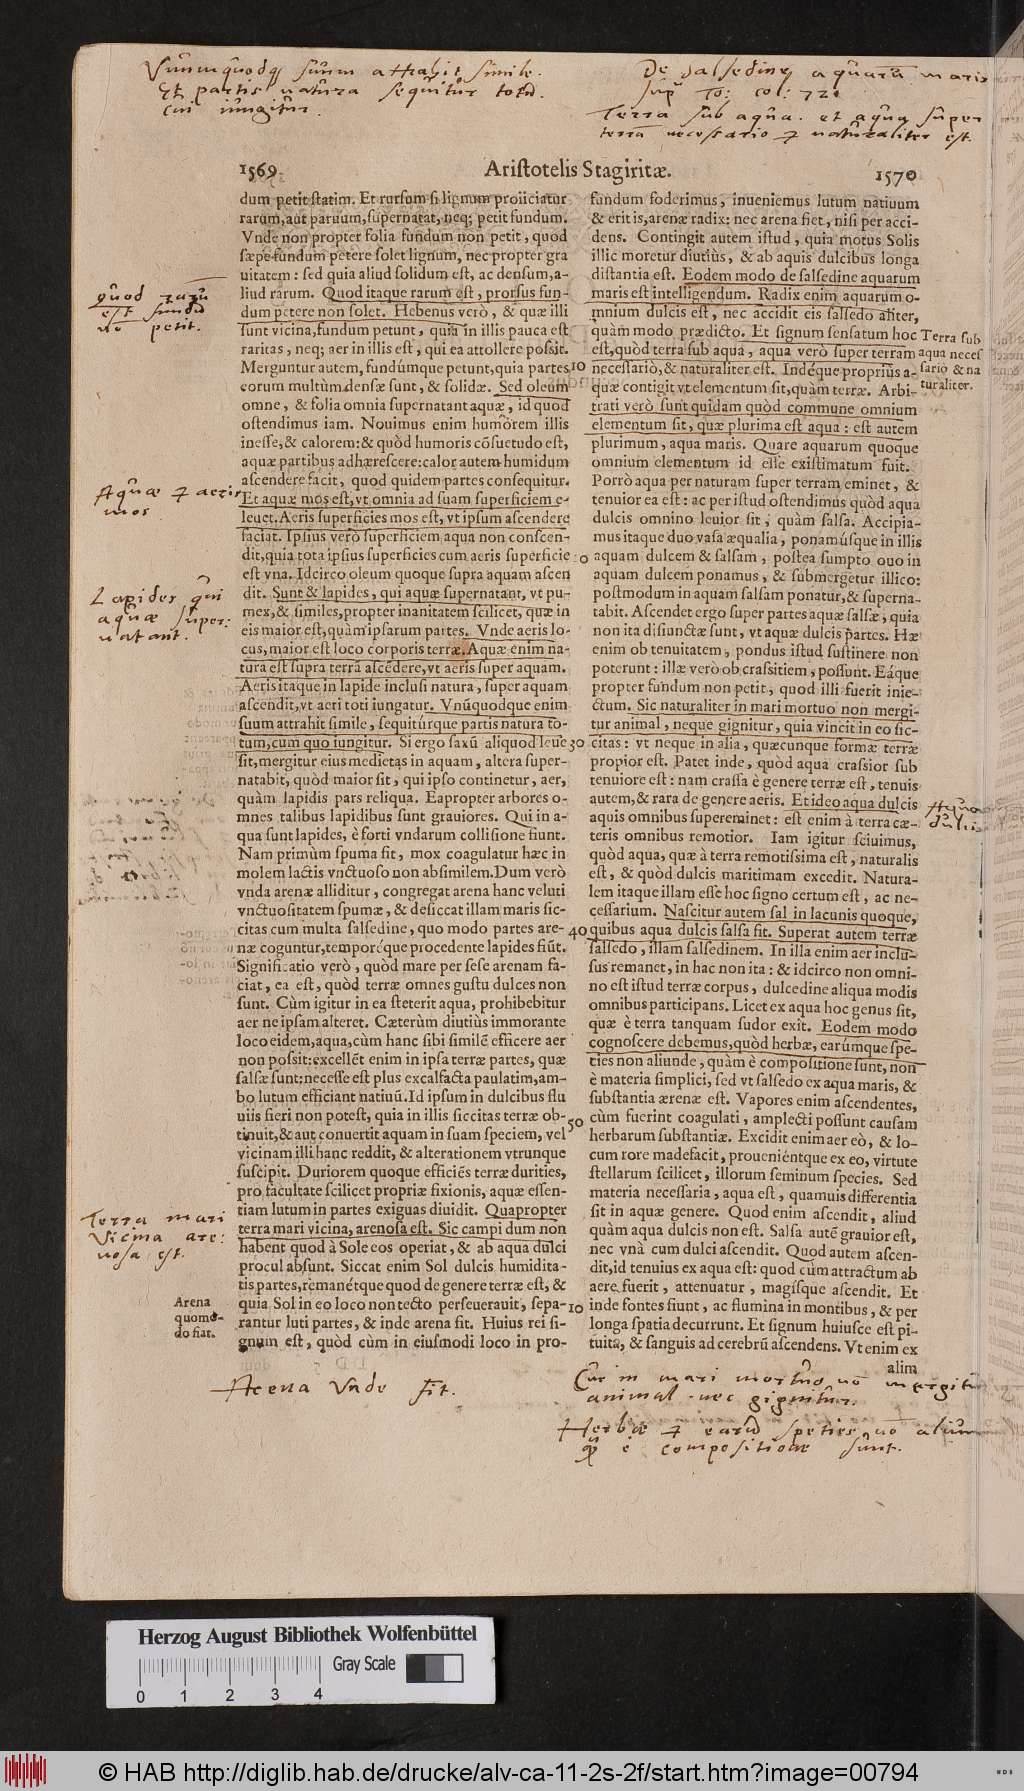 Vnumquodq3 suum attrahit simile.
Et partis natura sequitur totū.
cui iungitur.
De salsedine aquarū maris
sup To: col: 721
Terra sub aqua. et aqua super
terrā necessario & naturaliter est.
1569
Aristotelis Stagiritæ.
1570
dum petit statim. Et rursum si lignum proiiciatur
rarum, aut paruum, supernatat, neq; petit fundum.
Vnde non propter folia fundum non petit, quod
sæpe fundum petere solet lignum, nec propter gra
uitatem: sed quia aliud solidum est, ac densum, a-
liud rarum. Quod itaque rarum est, prorsus fun-
dum petere non solet. Hebenus verò, & quæ illi
sunt vicina, fundum petunt, quia in illis pauca est
raritas, neq; aer in illis est, qui ea attollere possit.
Merguntur autem, fundúmque petunt, quia partes
eorum multùm densæ sunt, & solidæ. Sed oleum
omne, & folia omnia supernatant aquæ, id quod
ostendimus iam. Nouimus enim humorem illis
inesse, & calorem: & quòd humoris cōsuetudo est,
aquæ partibus adhærescere: calor autem humidum
ascendere facit, quod quidem partes consequitur.
Et aquæ mos est, vt omnia ad suam superficiem e-
leuet. Aeris superficies mos est, vt ipsum ascendere
faciat. Ipsius verò superficiem aqua non conscen-
dit, quia tota ipsius superficies cum aeris superficie
est vna. Idcirco oleum quoque supra aquam ascen
dit. Sunt & lapides, qui aquæ supernatant, vt pu-
mex, & similes, propter inanitatem scilicet, quæ in
eis maior est, quàm ipsarum partes. Vnde aeris lo-
cus, maior est loco corporis terræ. Aquæ enim na-
tura est supra terrā ascēdere, vt aeris super aquam.
Aeris itaque in lapide inclusi natura, super aquam
ascendit, vt aeri toti iungatur. Vnūquodque enim
suum attrahit simile, sequitúrque partis natura to-
tum, cum quo iungitur. Si ergo saxū aliquod leue
sit, mergitur eius medietas in aquam, altera super-
natabit, quòd maior sit, qui ipso continetur, aer,
quàm lapidis pars reliqua. Eapropter arbores o-
mnes talibus lapidibus sunt grauiores. Qui in a-
qua sunt lapides, è forti vndarum collisione fiunt.
Nam primùm spuma fit, mox coagulatur hæc in
molem lactis vnctuoso non absimilem. Dum verò
vnda arenæ alliditur, congregat arena hanc veluti
vnctuositatem spumæ, & desiccat illam maris sic-
citas cum multa salsedine, quo modo partes are-
næ coguntur, temporéque procedente lapides fiūt.
Significatio verò, quòd mare per sese arenam fa-
ciat, ea est, quòd terræ omnes gustu dulces non
sunt. Cùm igitur in ea steterit aqua, prohibebitur
aer ne ipsam alteret. Cæterùm diutiùs immorante
loco eidem, aqua, cùm hanc sibi similē efficere aer
non possit: excellēt enim in ipsa terræ partes, quæ
salsæ sunt: necesse est plus excalfacta paulatim, am-
bo lutum efficiant natiuū. Id ipsum in dulcibus flu
uiis fieri non potest, quia in illis siccitas terræ ob-
tinuit, & aut conuertit aquam in suam speciem, vel
vicinam illi hanc reddit, & alterationem vtrunque
suscipit. Duriorem quoque efficiēs terræ durities,
pro facultate scilicet propriæ fixionis, aquæ essen-
tiam lutum in partes exiguas diuidit. Quapropter
terra mari vicina, arenosa est. Sic campi dum non
habent quod à Sole eos operiat, & ab aqua dulci
procul absunt. Siccat enim Sol dulcis humidita-
tis partes, remanétque quod de genere terræ est, &
quia Sol in eo loco non tecto perseuerauit, sepa-
rantur luti partes, & inde arena fit. Huius rei si-
gnum est, quòd cùm in eiusmodi loco in pro-
quod rarū
est fundū
nō petit.
Aquæ & aeris
mos
Lapides qui
aquæ super:
natant.
Terra mari
vicina are:
nosa est.
Arena
quomo-
do fiat.
10
20
30
40
50
10
fundum foderimus, inueniemus lutum natiuum
& erit is, arenæ radix: nec arena fiet, nisi per acci-
dens. Contingit autem istud, quia motus Solis
illic moretur diutiùs, & ab aquis dulcibus longa
distantia est. Eodem modo de salsedine aquarum
maris est intelligendum. Radix enim aquarum o-
mnium dulcis est, nec accidit eis salsedo aliter,
quàm modo prædicto. Et signum sensatum hoc
est, quòd terra sub aqua, aqua verò super terram
necessariò, & naturaliter est. Indéque proprius a-
quæ contigit vt elementum sit, quàm terræ. Arbi-
trati verò sunt quidam quòd commune omnium
elementum sit, quæ plurima est aqua: est autem
plurimum, aqua maris. Quare aquarum quoque
omnium elementum id esse existimatum fuit.
Porrò aqua per naturam super terram eminet, &
tenuior ea est: ac per istud ostendimus quòd aqua
dulcis omnino leuior sit, quàm salsa. Accipia-
mus itaque duo vasa æqualia, ponamúsque in illis
aquam dulcem & salsam, postea sumpto ouo in
aquam dulcem ponamus, & submergetur illico:
postmodum in aquam salsam ponatur, & superna-
tabit. Ascendet ergo super partes aquæ salsæ, quia
non ita disiunctæ sunt, vt aquæ dulcis partes. Hæ
enim ob tenuitatem, pondus istud sustinere non
poterunt: illæ verò ob crassitiem, possunt. Eáque
propter fundum non petit, quod illi fuerit inie-
ctum. Sic naturaliter in mari mortuo non mergi-
tur animal, neque gignitur, quia vincit in eo sic-
citas: vt neque in alia, quæcunque formæ terræ
propior est. Patet inde, quòd aqua crassior sub
tenuiore est: nam crassa è genere terræ est, tenuis
autem, & rara de genere aeris. Et ideo aqua dulcis
aquis omnibus supereminet: est enim à terra cæ-
teris omnibus remotior. Iam igitur sciuimus,
quòd aqua, quæ à terra remotissima est, naturalis
est, & quòd dulcis maritimam excedit. Natura-
lem itaque illam esse hoc signo certum est, ac ne-
cessarium. Nascitur autem sal in lacunis quoque,
quibus aqua dulcis salsa fit. Superat autem terræ
salsedo, illam salsedinem. In illa enim aer inclu-
sus remanet, in hac non ita: & idcirco non omni-
no est istud terræ corpus, dulcedine aliqua modis
omnibus participans. Licet ex aqua hoc genus sit,
quæ è terra tanquam sudor exit. Eodem modo
cognoscere debemus, quòd herbæ, earúmque spe-
ties non aliunde, quàm è compositione sunt, non
è materia simplici, sed vt salsedo ex aqua maris, &
substantia ærenæ est. Vapores enim ascendentes,
cùm fuerint coagulati, amplecti possunt causam
herbarum substantiæ. Excidit enim aer eò, & lo-
cum rore madefacit, prouenièntque ex eo, virtute
stellarum scilicet, illorum seminum species. Sed
materia necessaria, aqua est, quamuis differentia
sit in aquæ genere. Quod enim ascendit, aliud
quàm aqua dulcis non est. Salsa autē grauior est,
nec vnà cum dulci ascendit. Quod autem ascen-
dit, id tenuius ex aqua est: quod cùm attractum ab
aere fuerit, attenuatur, magísque ascendit. Et
inde fontes fiunt, ac flumina in montibus, & per
longa spatia decurrunt. Et signum huiusce est pi-
tuita, & sanguis ad cerebrū ascendens. Vt enim ex
alim
Terra sub
aqua neces
sario & na
turaliter.
Aqua
dulcis
Arena unde fit.
Cur in mari mortuo nō mergitur
animal nec gignitur.
Herbæ & earū speties nō alium
è compositione sunt.
Herzog August Bibliothek Wolfenbüttel
Gray Scale
0 1 2 3 4
© HAB http://diglib.hab.de/drucke/alv-ca-11-2s-2f/start.htm?image=00794